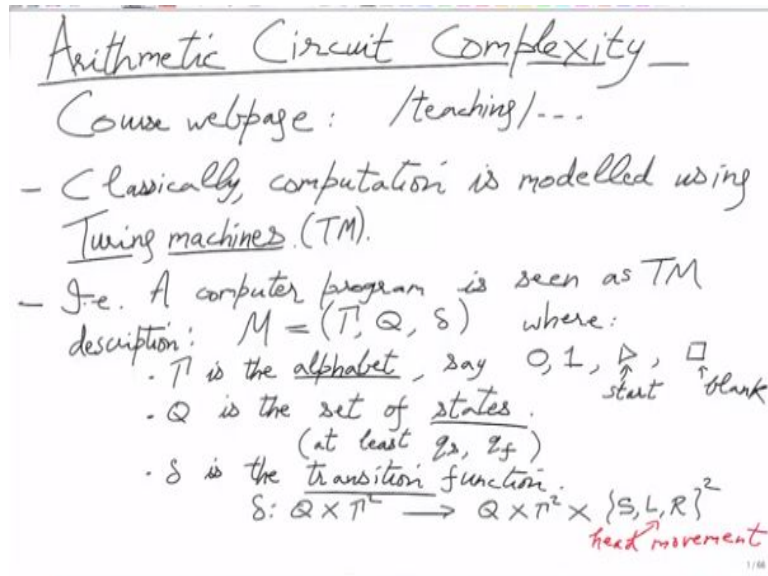 Arithmetic Circuit Complexity
Course webpage: /teaching/...
- Classically, computation is modelled using
Turing machines. (TM).
- I.e. A computer program is seen as TM
description: M = (Γ, Q, δ) where:
· Γ is the alphabet, say 0, 1, ▷, □
start blank
· Q is the set of states.
(at least qs, qf)
· δ is the transition function.
δ: Q × Γ² → Q × Γ² × {S, L, R}²
head movement
1/66